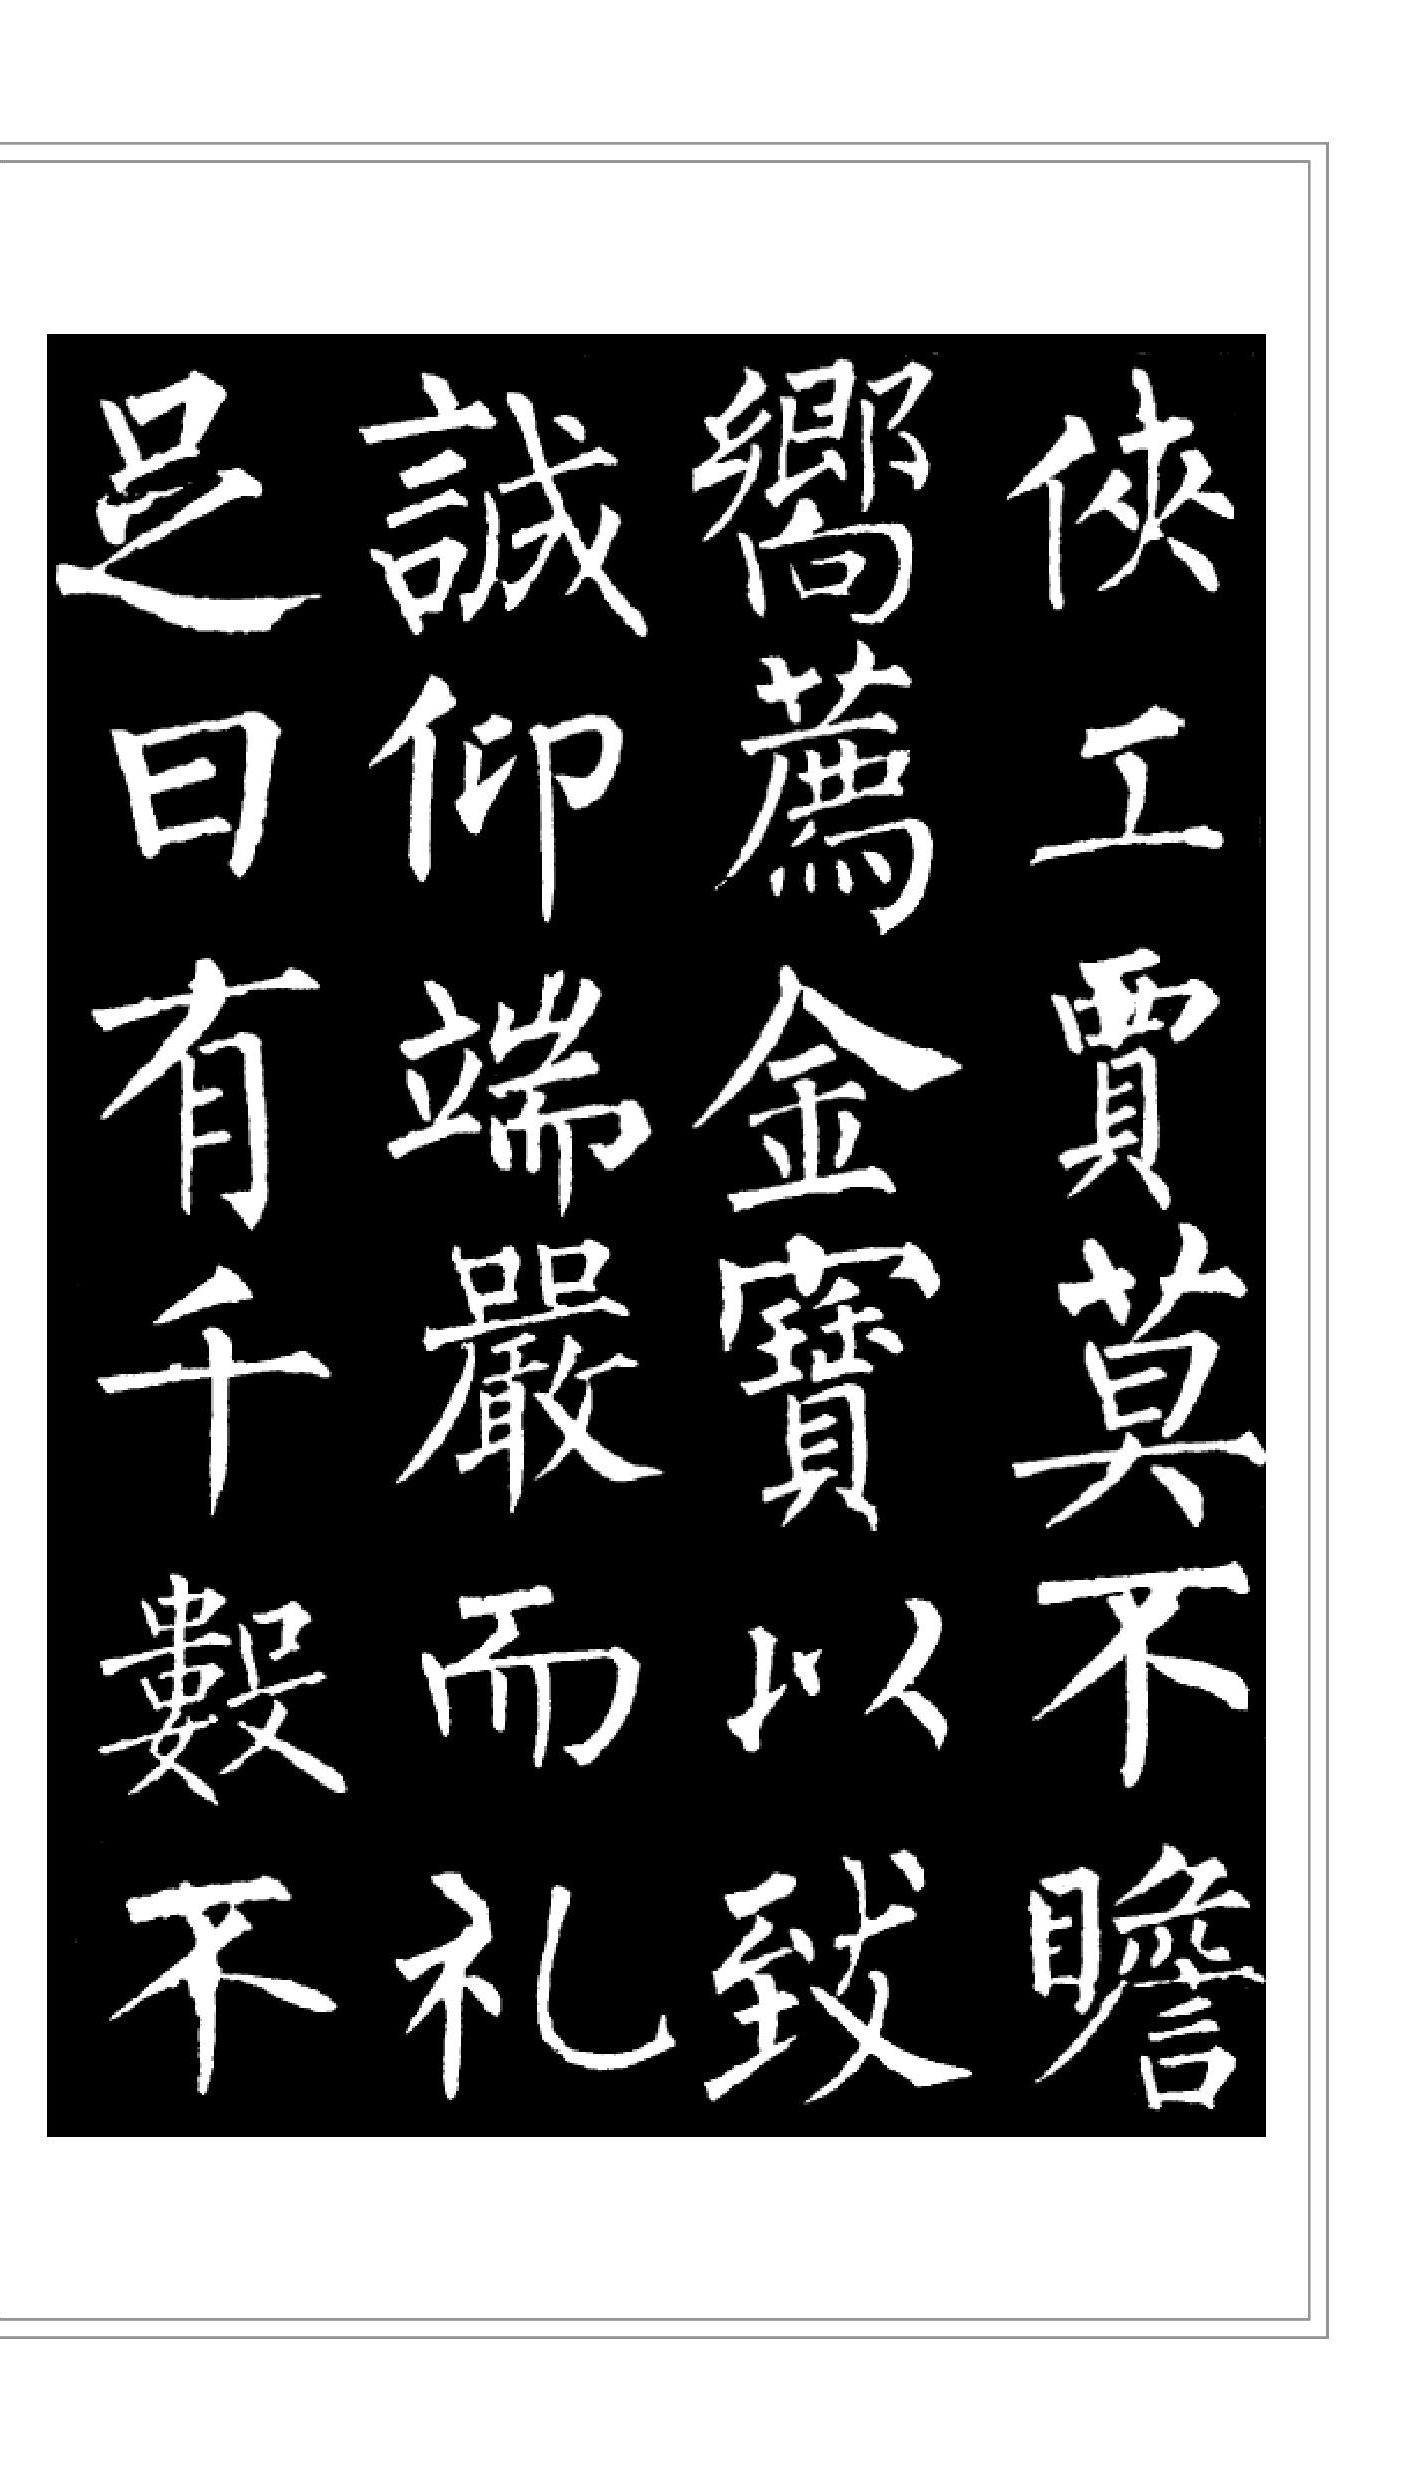 俠工賈莫不瞻
嚮薦金寶以致
誠仰端嚴而礼
足日有千數不